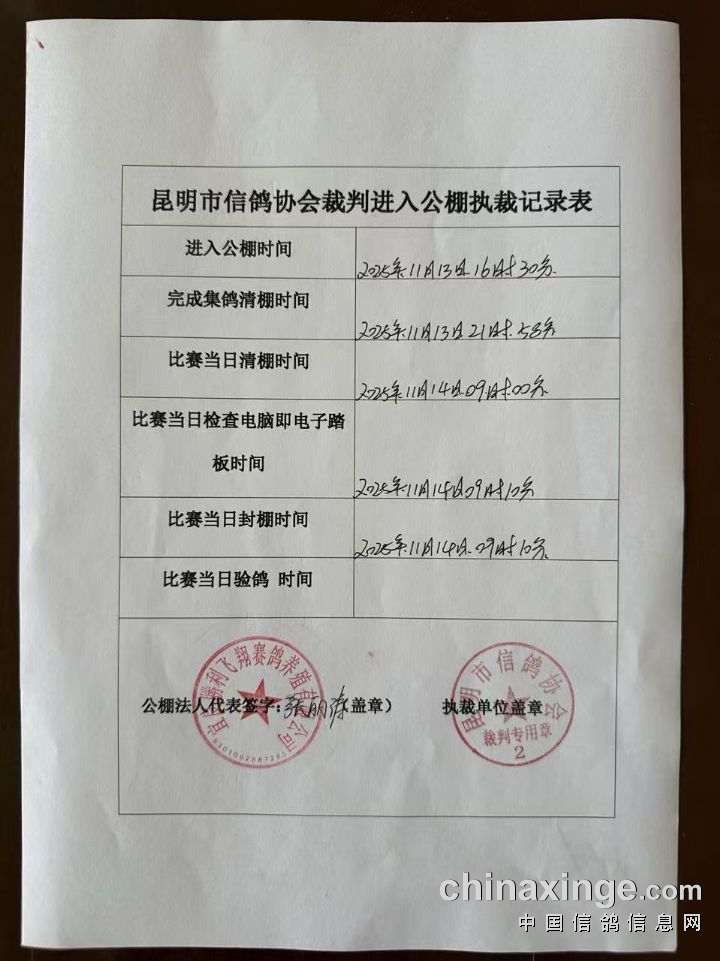 昆明市信鸽协会裁判进入公棚执裁记录表
进入公棚时间
2025年11月13日16时30分
完成集鸽清棚时间
2025年11月13日21时58分
比赛当日清棚时间
2025年11月14日09时00分
比赛当日检查电脑即电子踏
板时间
2025年11月14日09时10分
比赛当日封棚时间
2025年11月14日09时10分
比赛当日验鸽 时间
公棚法人代表签字:张丽(盖章)
执裁单位盖章
宜良胜利飞翔赛鸽养殖有限公司
昆明市信鸽协会
裁判专用章
2
chinaxinge.com
中国信鸽信息网